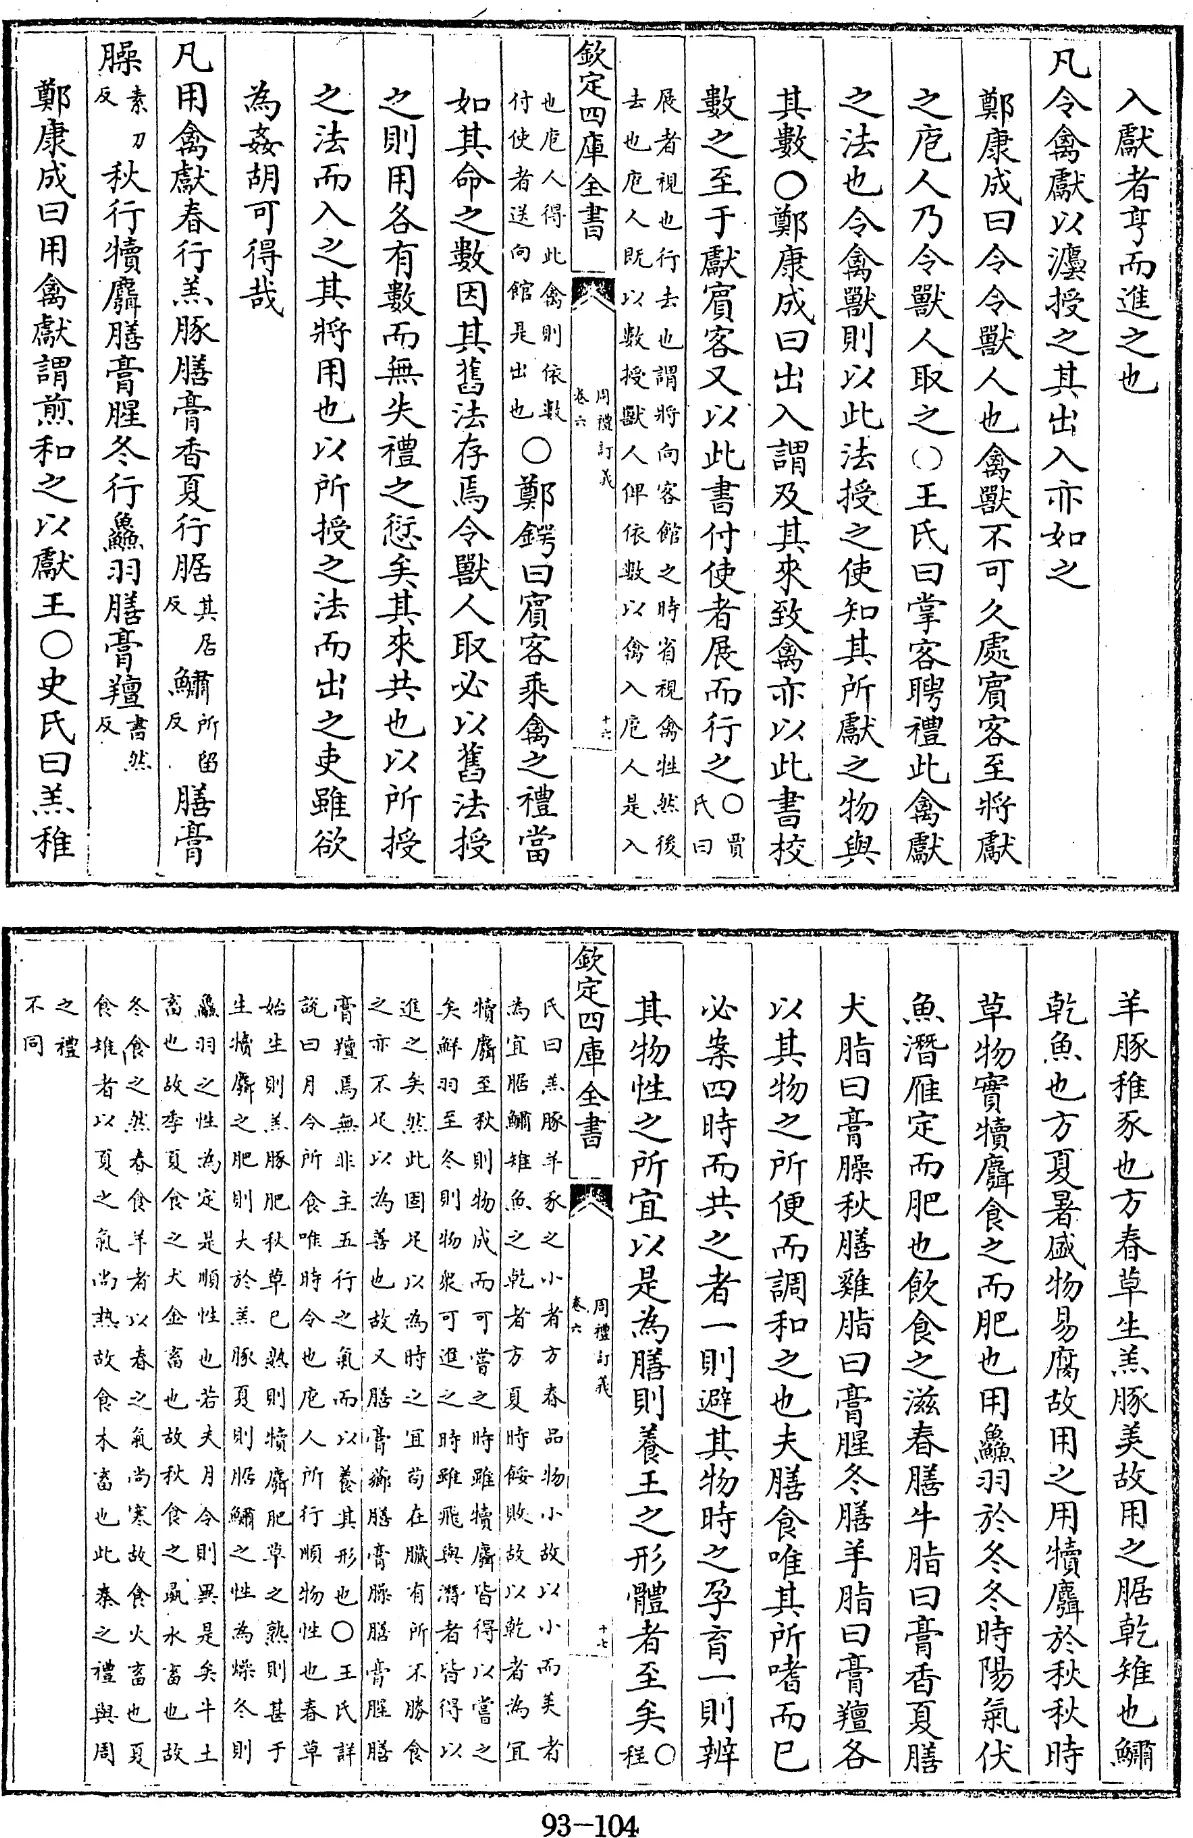 入獻者亨而進之也
凡令禽獻以灋授之其出入亦如之
鄭康成曰令令獸人也禽獸不可久處賓客至將獻
之庖人乃令獸人取之○王氏曰掌客聘禮此禽獻
之法也令禽獸則以此法授之使知其所獻之物與
其數○鄭康成曰出入謂及其來致禽亦以此書校
數之至于獻賓客又以此書付使者展而行之○賈氏曰
展者視也行去也謂將向客館之時省視禽牲然後
去也庖人既以數授獸人俾依數以禽入庖人是入
欽定四庫全書
周禮訂義
卷六
十六
也庖人得此禽則依數
付使者送向館是出也○鄭鍔曰賓客乘禽之禮當
如其命之數因其舊法存焉令獸人取必以舊法授
之則用各有數而無失禮之愆矣其來共也以所授
之法而入之其將用也以所授之法而出之吏雖欲
為姦胡可得哉
凡用禽獻春行羔豚膳膏香夏行腒其居反鱐所留反膳膏
臊素刀反秋行犢麛膳膏腥冬行鱻羽膳膏羶書然反
鄭康成曰用禽獻謂煎和之以獻王○史氏曰羔稚
羊豚稚豕也方春草生羔豚美故用之腒乾雉也鱐
乾魚也方夏暑盛物易腐故用之用犢麛於秋秋時
草物實犢麛食之而肥也用鱻羽於冬冬時陽氣伏
魚潛雁定而肥也飲食之滋春膳牛脂曰膏香夏膳
犬脂曰膏臊秋膳雞脂曰膏腥冬膳羊脂曰膏羶各
以其物之所便而調和之也夫膳食唯其所嗜而已
必案四時而共之者一則避其物時之孕育一則辨
其物性之所宜以是為膳則養王之形體者至矣○程
欽定四庫全書
周禮訂義
卷六
十七
氏曰羔豚羊豕之小者方春品物小故以小而美者
為宜腒鱐雉魚之乾者方夏時餒敗故以乾者為宜
犢麛至秋則物成而可嘗之時雖犢麛皆得以嘗之
矣鮮羽至冬則物衆可進之時雖飛與潛者皆得以
進之矣然此固足以為時之宜苟在臟有所不勝食
之亦不足以為善也故又膳膏薌膳膏臊膳膏腥膳
膏羶焉無非主五行之氣而以養其形也○王氏詳
說曰月令所食唯時令也庖人所行順物性也春草
始生則羔豚肥秋草已熟則犢麛肥草之熟則甚于
生犢麛之肥則大於羔豚夏則腒鱐之性為燥冬則
鱻羽之性為定是順性也若夫月令則異是矣牛土
畜也故季夏食之犬金畜也故秋食之彘水畜也故
冬食之然春食羊者以春之氣尚寒故食火畜也夏
食雉者以夏之氣尚熱故食木畜也此秦之禮與周
之禮
不同
93-104